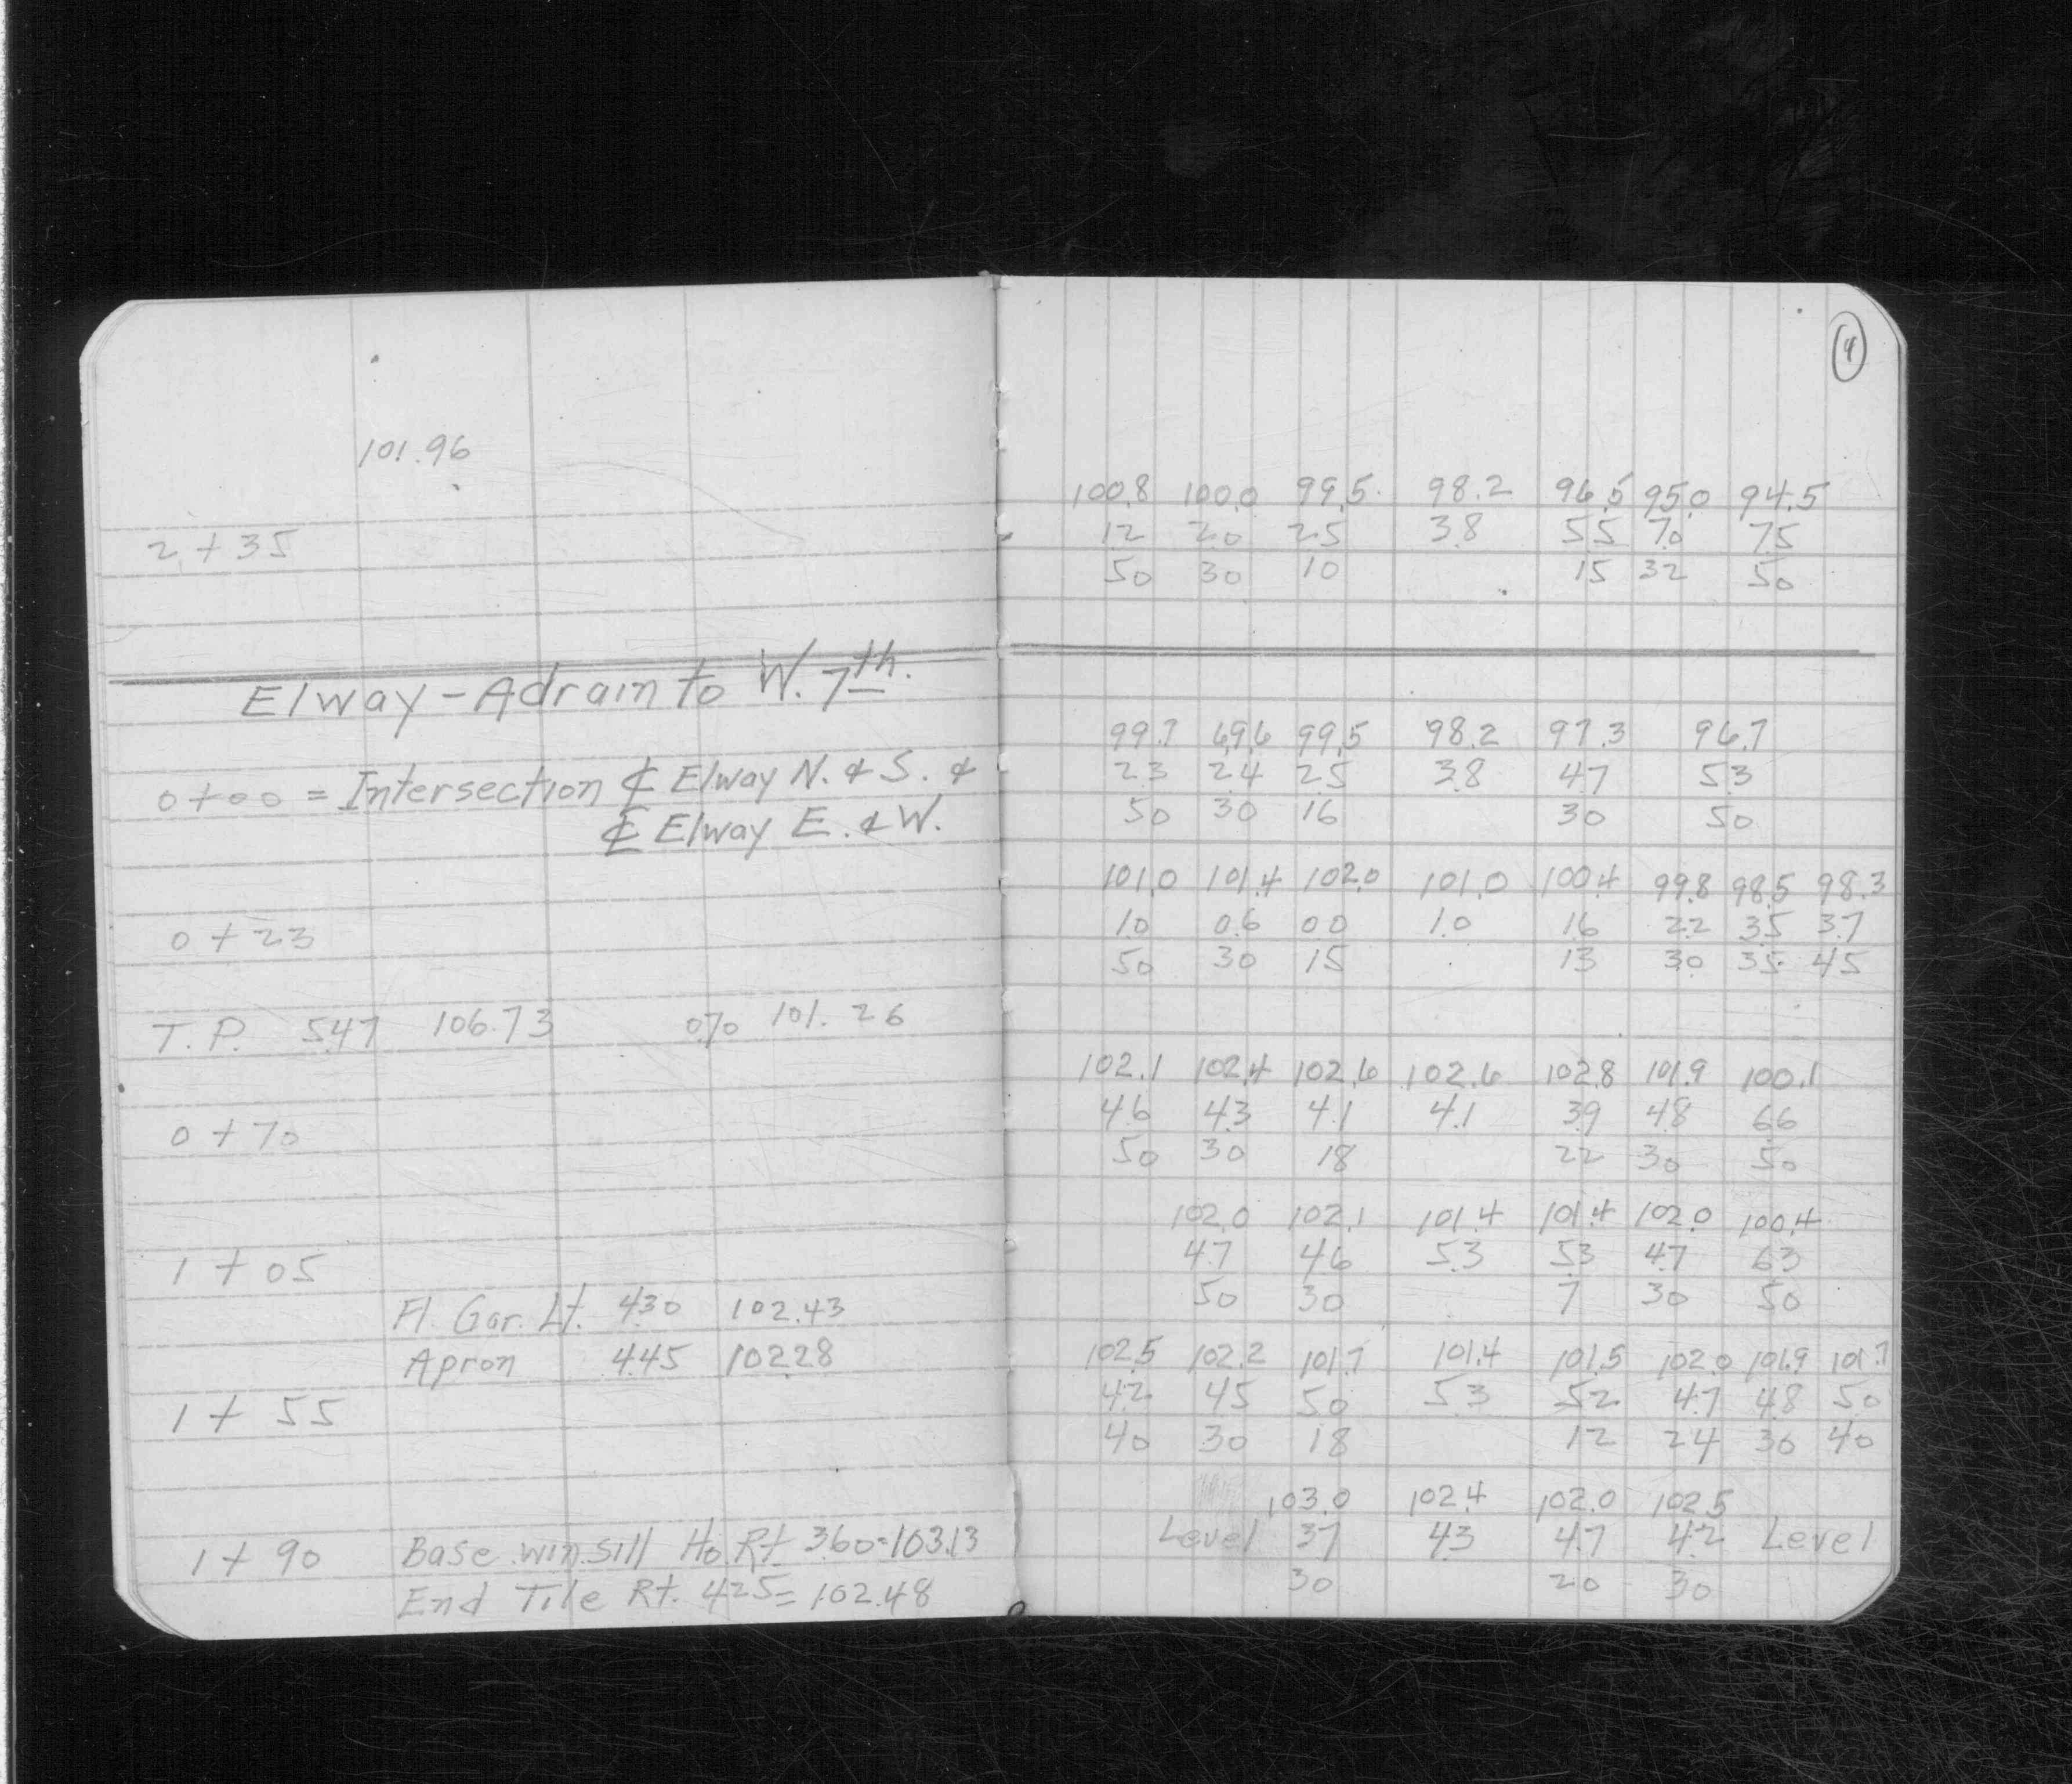 4
101.96
100.8 100.0 99.5 98.2 96.5 95.0 94.5
2+35 1.2 2.0 2.5 3.8 5.5 7.0 7.5
50 30 10 15 32 50
Elway-Adrain to W. 7th.
99.7 99.6 99.5 98.2 97.3 96.7
0+00 = Intersection ℄ Elway N. & S. & 2.3 2.4 2.5 3.8 4.7 5.3
℄ Elway E. & W. 50 30 16 30 50
101.0 101.4 102.0 101.0 100.4 99.8 98.5 98.3
0+23 1.0 0.6 0.0 1.0 1.6 2.2 3.5 3.7
50 30 15 13 30 35 45
T.P. 5.47 106.73 0.70 101.26
102.1 102.4 102.6 102.6 102.8 101.9 100.1
0+70 4.6 4.3 4.1 4.1 3.9 4.8 6.6
50 30 18 22 30 50
102.0 102.1 101.4 101.4 102.0 100.4
1+05 4.7 4.6 5.3 5.3 4.7 6.3
Fl. Gar. Lt. 4.30 102.43 50 30 7 30 50
Apron 4.45 102.28 102.5 102.2 101.7 101.4 101.5 102.0 101.9 101.7
1+55 4.2 4.5 5.0 5.3 5.2 4.7 4.8 5.0
40 30 18 12 24 30 40
103.0 102.4 102.0 102.5
1+90 Base win. sill Ho. Rt 3.60=103.13 Level 3.7 4.3 4.7 4.2 Level
End Tile Rt. 4.25= 102.48 30 20 30